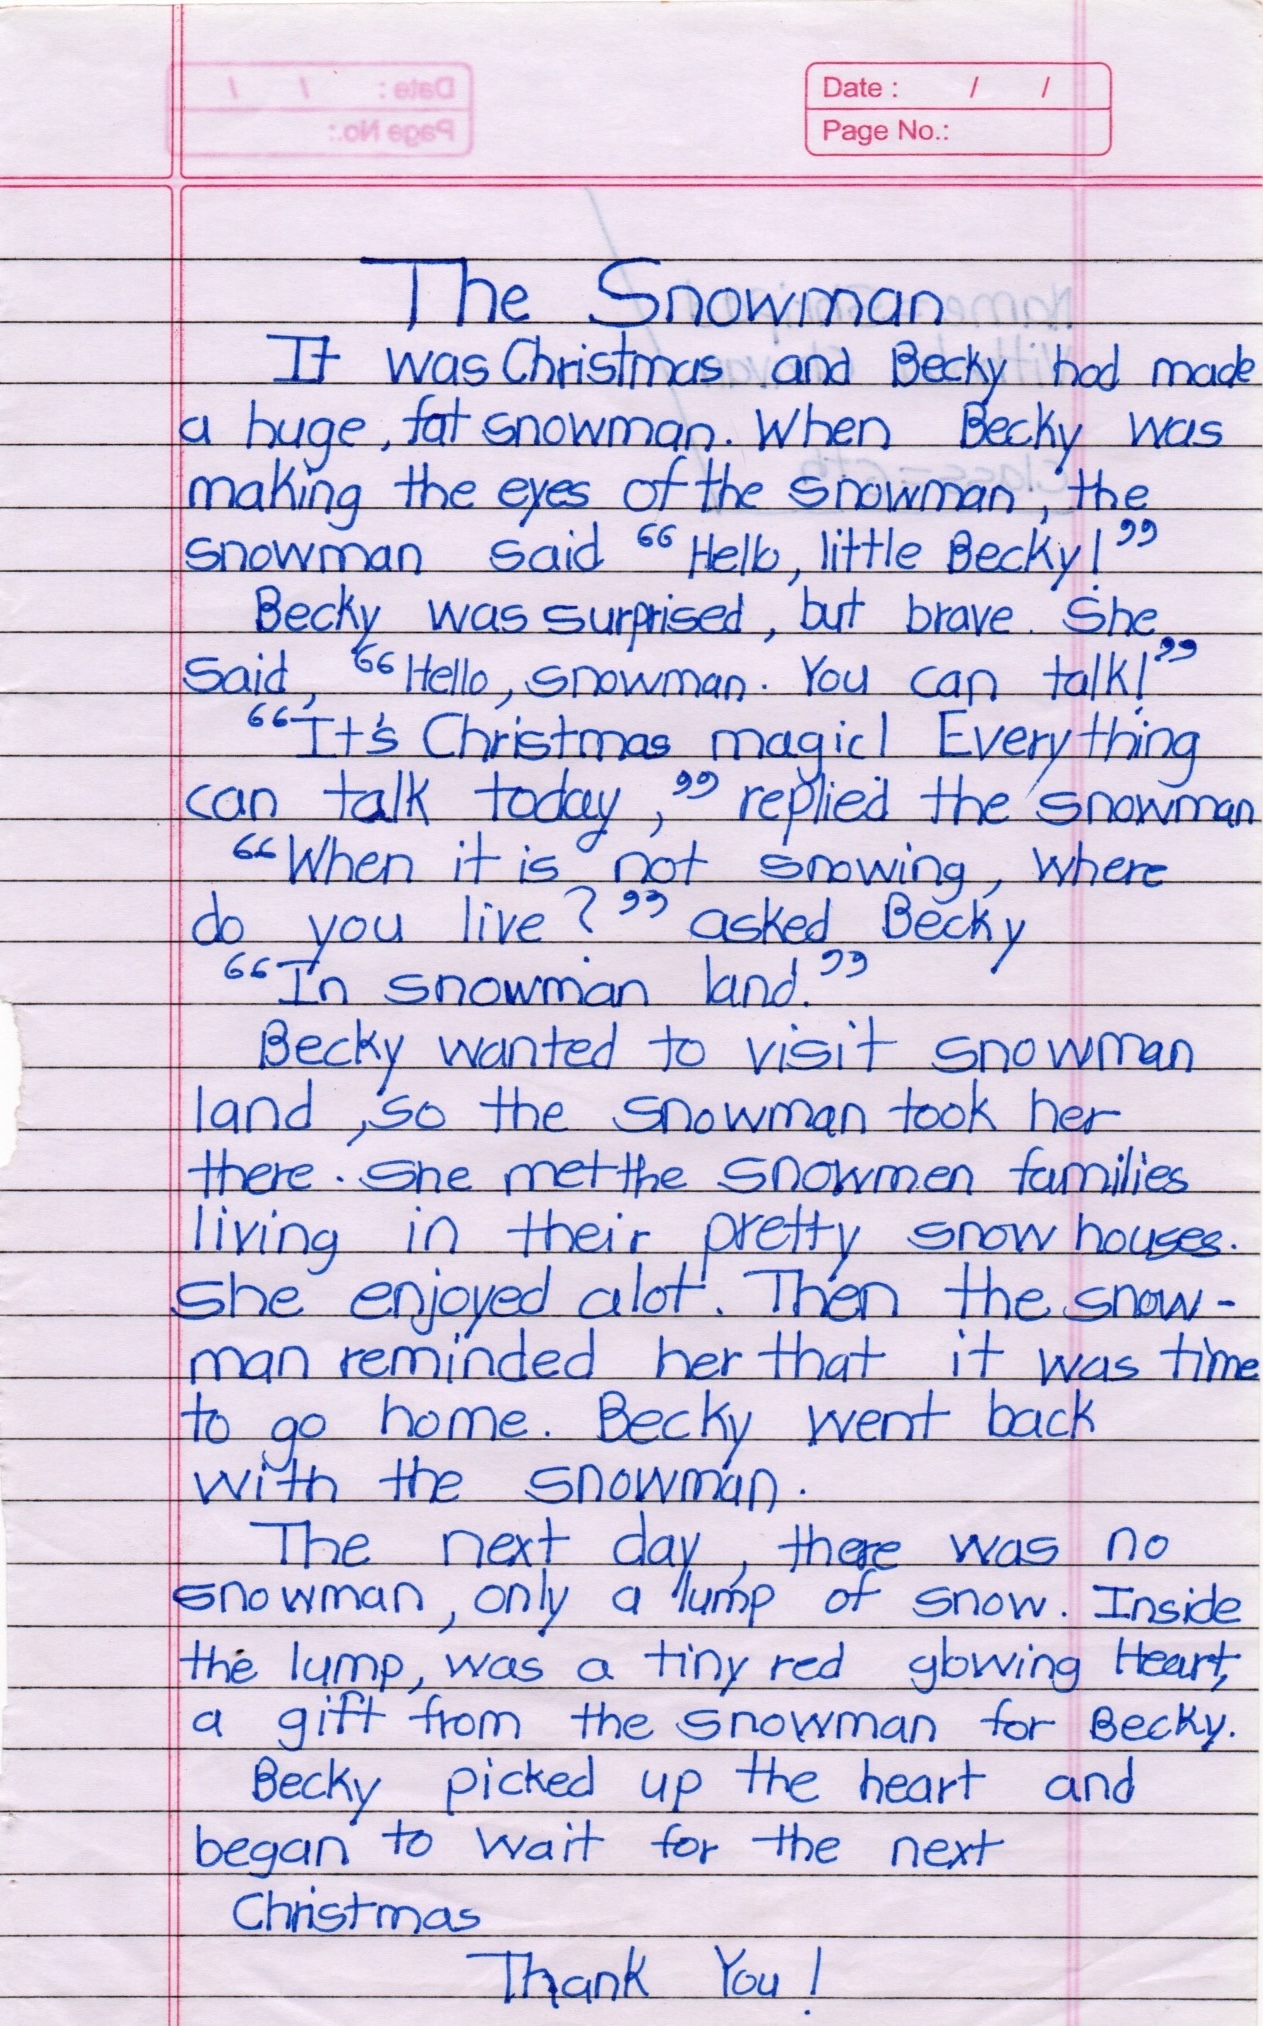 Date : / /
Page No.:
The Snowman
It was Christmas and Becky had made
a huge, fat snowman. When Becky was
making the eyes of the snowman, the
snowman said "Hello, little Becky!"
Becky was surprised, but brave. She
said, "Hello, snowman. You can talk!"
"It's Christmas magic! Everything
can talk today," replied the snowman
"When it is not snowing, where
do you live?" asked Becky
"In snowman land."
Becky wanted to visit snowman
land, so the snowman took her
there. She met the snowmen families
living in their pretty snow houses.
She enjoyed alot. Then the snow-
man reminded her that it was time
to go home. Becky went back
with the snowman.
The next day, there was no
snowman, only a lump of snow. Inside
the lump, was a tiny red glowing Heart,
a gift from the snowman for Becky.
Becky picked up the heart and
began to wait for the next
Christmas
Thank You!